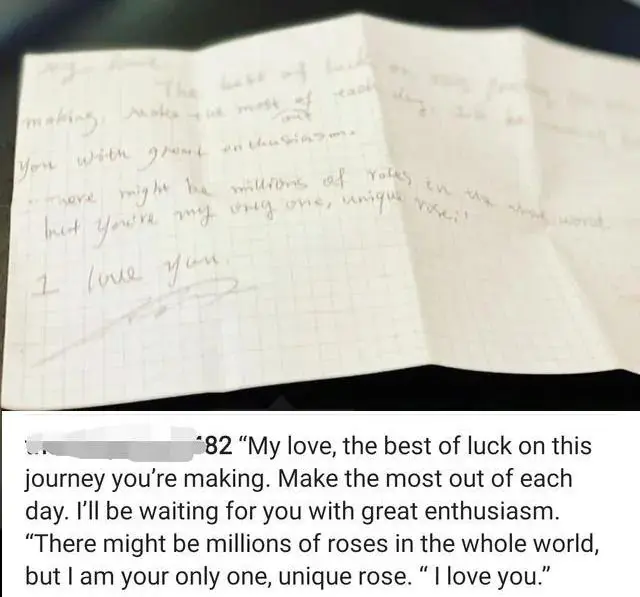 My love
The best of luck on
making. Make the most of each day.
out
you with great enthusiasm.
might be millions of roses in the whole world
but you're my only one, unique rose!
I love you.
82 “My love, the best of luck on this
journey you’re making. Make the most out of each
day. I’ll be waiting for you with great enthusiasm.
“There might be millions of roses in the whole world,
but I am your only one, unique rose. “ I love you.”